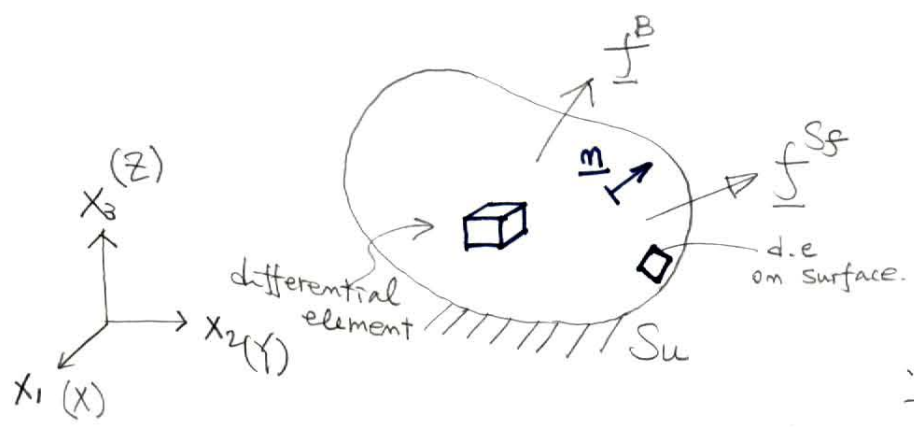 f^B
n
f^Sf
X₃ (Z)
differential
element
d.e
on surface.
X₂(Y)
Su
X₁ (X)